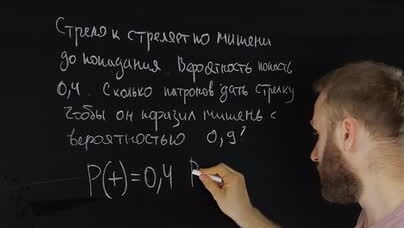 Стрелок стреляет по мишени
до попадания. Вероятность попасть
0,4. Сколько патронов дать стрелку
Чтобы он поразил мишень с
вероятностью 0,9?
P(+)=0,4 P